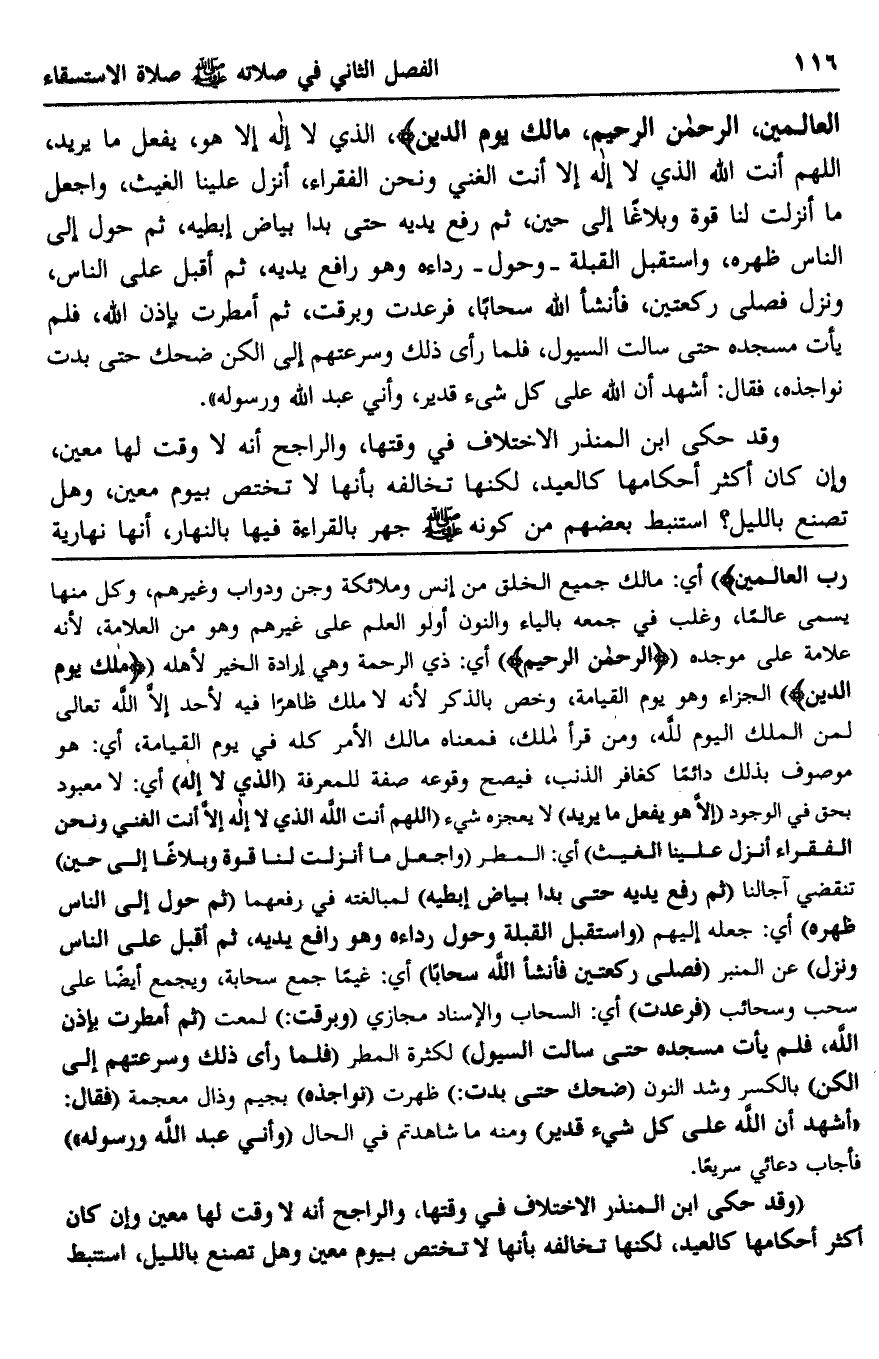 ١١٦
الفصل الثاني في صلاته ﷺ صلاة الاستسقاء
العالمين، الرحمٰن الرحيم، مالك يوم الدين﴾، الذي لا إلٰه إلا هو، يفعل ما يريد،
اللهم أنت الله الذي لا إلٰه إلا أنت الغني ونحن الفقراء، أنزل علينا الغيث، واجعل
ما أنزلت لنا قوة وبلاغًا إلى حين، ثم رفع يديه حتى بدا بياض إبطيه، ثم حول إلى
الناس ظهره، واستقبل القبلة -وحول- رداءه وهو رافع يديه، ثم أقبل على الناس،
ونزل فصلى ركعتين، فأنشأ الله سحابًا، فرعدت وبرقت، ثم أمطرت بإذن الله، فلم
يأت مسجده حتى سالت السيول، فلما رأى ذلك وسرعتهم إلى الكن ضحك حتى بدت
نواجذه، فقال: أشهد أن الله على كل شيء قدير، وأني عبد الله ورسوله».
وقد حكى ابن المنذر الاختلاف في وقتها، والراجح أنه لا وقت لها معين،
وإن كان أكثر أحكامها كالعيد، لكنها تخالفه بأنها لا تختص بيوم معين، وهل
تصنع بالليل؟ استنبط بعضهم من كونه ﷺ جهر بالقراءة فيها بالنهار، أنها نهارية
رب العالمين﴾) أي: مالك جميع الخلق من إنس وملائكة وجن ودواب وغيرهم، وكل منها
يسمى عالمًا، وغلب في جمعه بالياء والنون أولو العلم على غيرهم وهو من العلامة، لأنه
علامة على موجده (﴿الرحمٰن الرحيم﴾) أي: ذي الرحمة وهي إرادة الخير لأهله (﴿مٰلك يوم
الدين﴾) الجزاء وهو يوم القيامة، وخص بالذكر لأنه لا ملك ظاهرًا فيه لأحد إلاَّ اللَّه تعالى
لمن الملك اليوم للَّه، ومن قرأ مٰلك، فمعناه مالك الأمر كله في يوم القيامة، أي: هو
موصوف بذلك دائمًا كغافر الذنب، فيصح وقوعه صفة للمعرفة (الذي لا إله) أي: لا معبود
بحق في الوجود (إلاَّ هو يفعل ما يريد) لا يعجزه شيء (اللهم أنت اللَّه الذي لا إلٰه إلاَّ أنت الغني ونحن
الفقراء أنزل علينا الغيث) أي: المطر (واجعل ما أنزلت لنا قوة وبلاغًا إلى حين)
تنقضي آجالنا (ثم رفع يديه حتى بدا بياض إبطيه) لمبالغته في رفعهما (ثم حول إلى الناس
ظهره) أي: جعله إليهم (واستقبل القبلة وحول رداءه وهو رافع يديه، ثم أقبل على الناس
ونزل) عن المنبر (فصلى ركعتين فأنشأ اللَّه سحابًا) أي: غيمًا جمع سحابة، ويجمع أيضًا على
سحب وسحائب (فرعدت) أي: السحاب والإسناد مجازي (وبرقت:) لمعت (ثم أمطرت بإذن
اللَّه، فلم يأت مسجده حتى سالت السيول) لكثرة المطر (فلما رأى ذلك وسرعتهم إلى
الكن) بالكسر وشد النون (ضحك حتى بدت:) ظهرت (نواجذه) بجيم وذال معجمة (فقال:
«أشهد أن اللَّه على كل شيء قدير) ومنه ما شاهدتم في الحال (وأني عبد اللَّه ورسوله»)
فأجاب دعائي سريعًا.
(وقد حكى ابن المنذر الاختلاف في وقتها، والراجح أنه لا وقت لها معين وإن كان
أكثر أحكامها كالعيد، لكنها تخالفه بأنها لا تختص بيوم معين وهل تصنع بالليل، استنبط